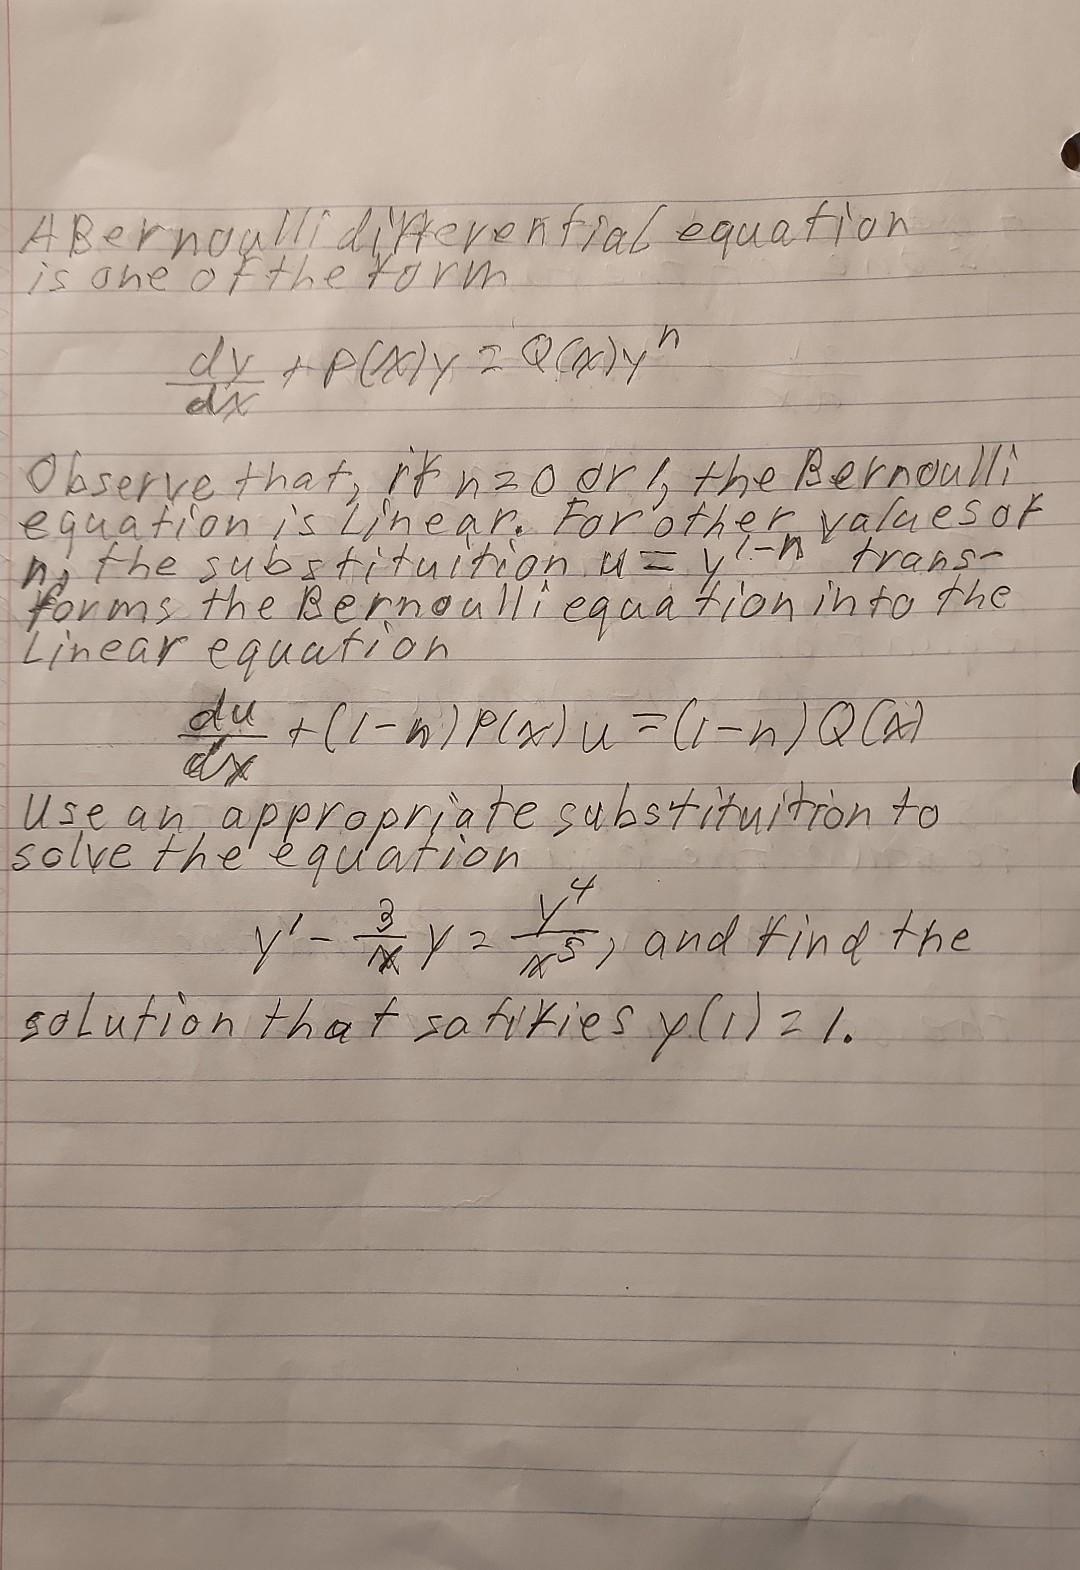 A Bernoulli differential equation
is one of the form
dy/dx + P(x)y = Q(x)y^n
Observe that, if n=0 or 1, the Bernoulli
equation is Linear. For other values of
n, the substituition u = y^1-n trans-
forms the Bernoulli equation into the
Linear equation
du/dx + (1-n)P(x)u = (1-n)Q(x)
Use an appropriate substituition to
solve the equation
y' - 3/x y = y^4/x^5, and find the
solution that satifies y(1) = 1.